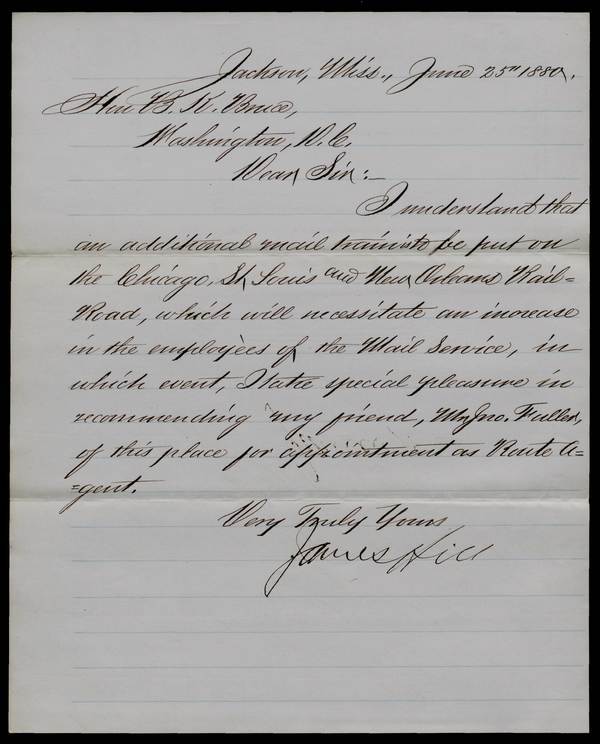 Jackson, Miss., June 25th 1880.
Hon B. K. Bruce,
Washington, D.C.
Dear Sir:–
I understand that
an additional mail train is to be put on
the Chicago, St, Louis and New Orleans Rail=
Road, which will necessitate an increase
in the employees of the Mail Service, in
which event, I take special pleasure in
recommending my friend, Mr Jno. Fuller,
of this place for appointment as Route A=
=gent.
Very Truly Yours
James Hill